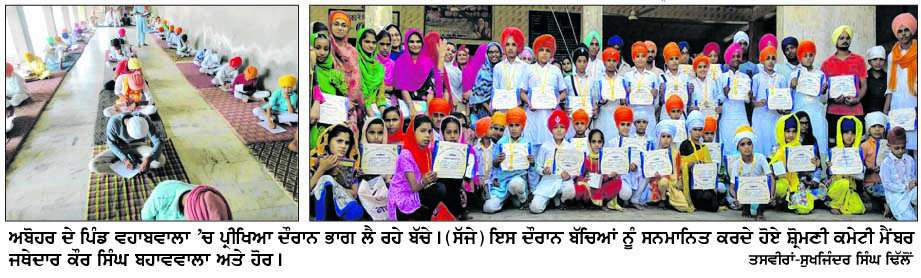 ਅਬੋਹਰ ਦੇ ਪਿੰਡ ਵਹਾਬਵਾਲਾ ’ਚ ਪ੍ਰੀਖਿਆ ਦੌਰਾਨ ਭਾਗ ਲੈ ਰਹੇ ਬੱਚੇ। (ਸੱਜੇ) ਇਸ ਦੌਰਾਨ ਬੱਚਿਆਂ ਨੂੰ ਸਨਮਾਨਿਤ ਕਰਦੇ ਹੋਏ ਸ਼੍ਰੋਮਣੀ ਕਮੇਟੀ ਮੈਂਬਰ
ਜਥੇਦਾਰ ਕੌਰ ਸਿੰਘ ਬਹਾਵਵਾਲਾ ਅਤੇ ਹੋਰ।
ਤਸਵੀਰਾਂ-ਸੁਖਜਿੰਦਰ ਸਿੰਘ ਢਿੱਲੋਂ